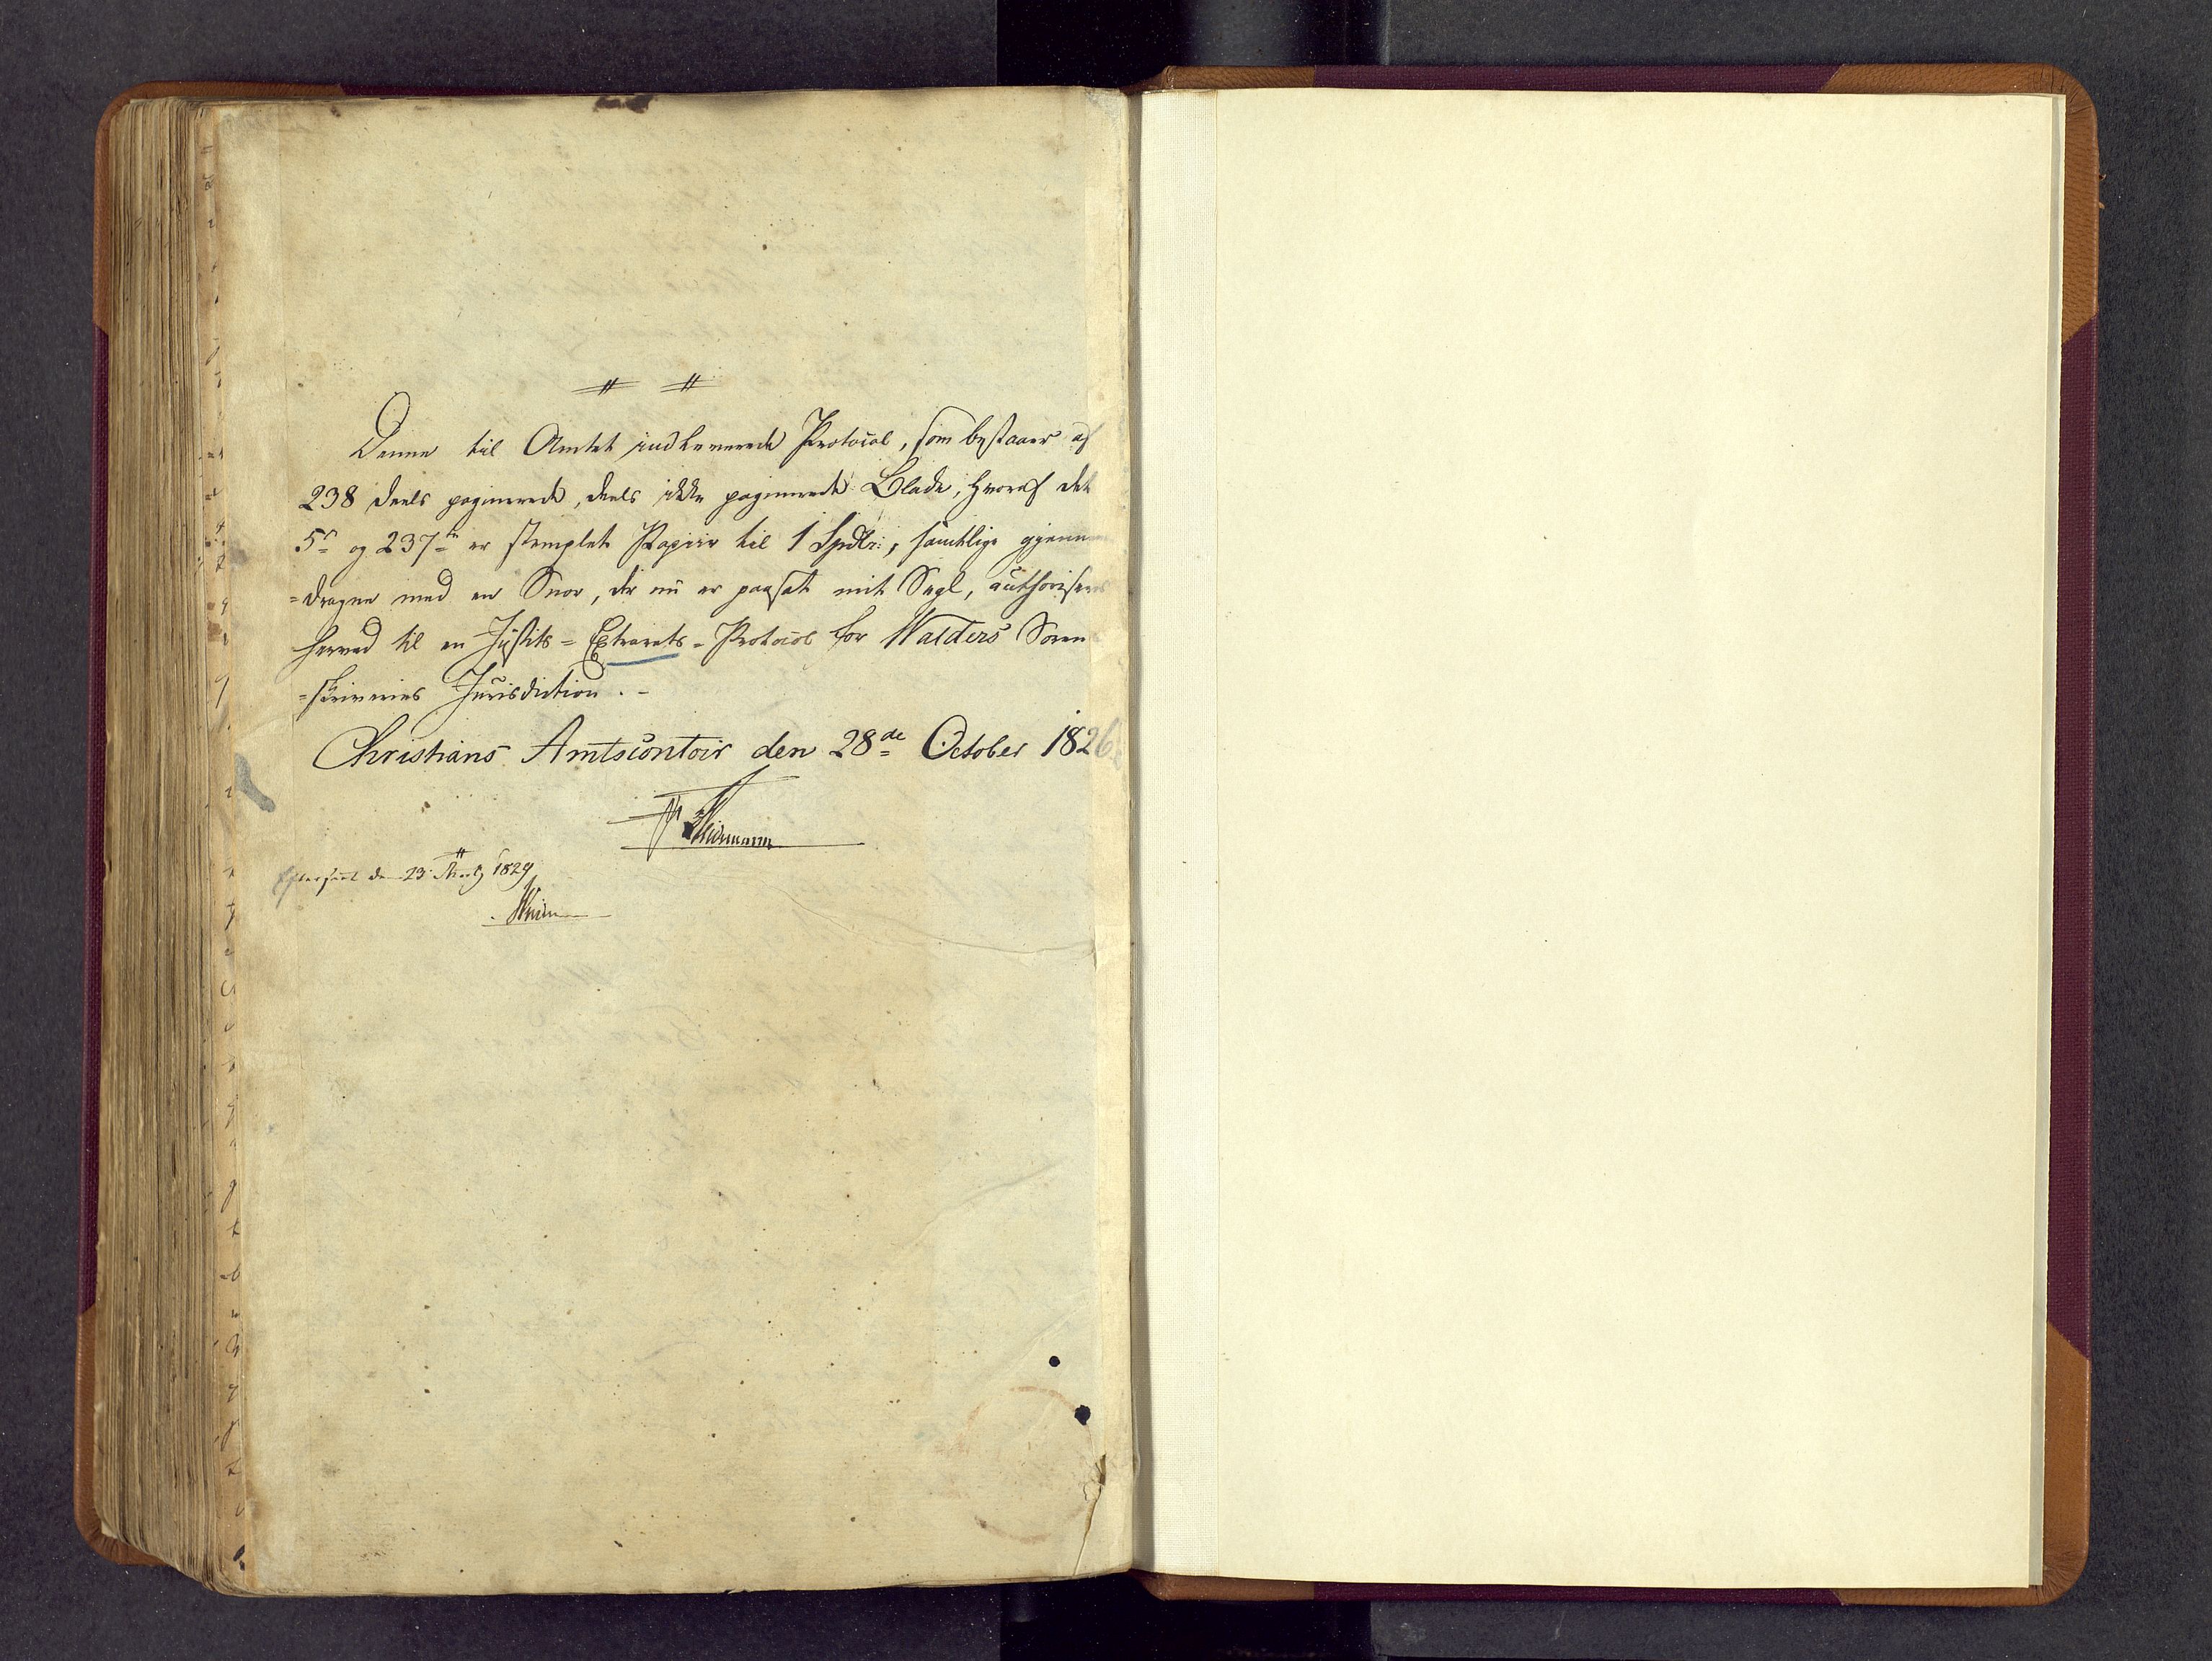 Denne til Amtet indleverede Protocol, som bestaaer af
238 deels paginerede, deels ikke paginerede Blade, hvoraf det
5te og 237te er stemplet Papiir til 1 Spdlr:, samtlige gjennem
=dragne med en Snor, der nu er paasat mit Segl, authoriseres
herved til en Justits= Extrarets= Protocol for Walders Soren
=skriveries Jurisdiction. -
Christians Amtscontoir den 28de October 1826.
Weidemann
Efterseet de 23 1829